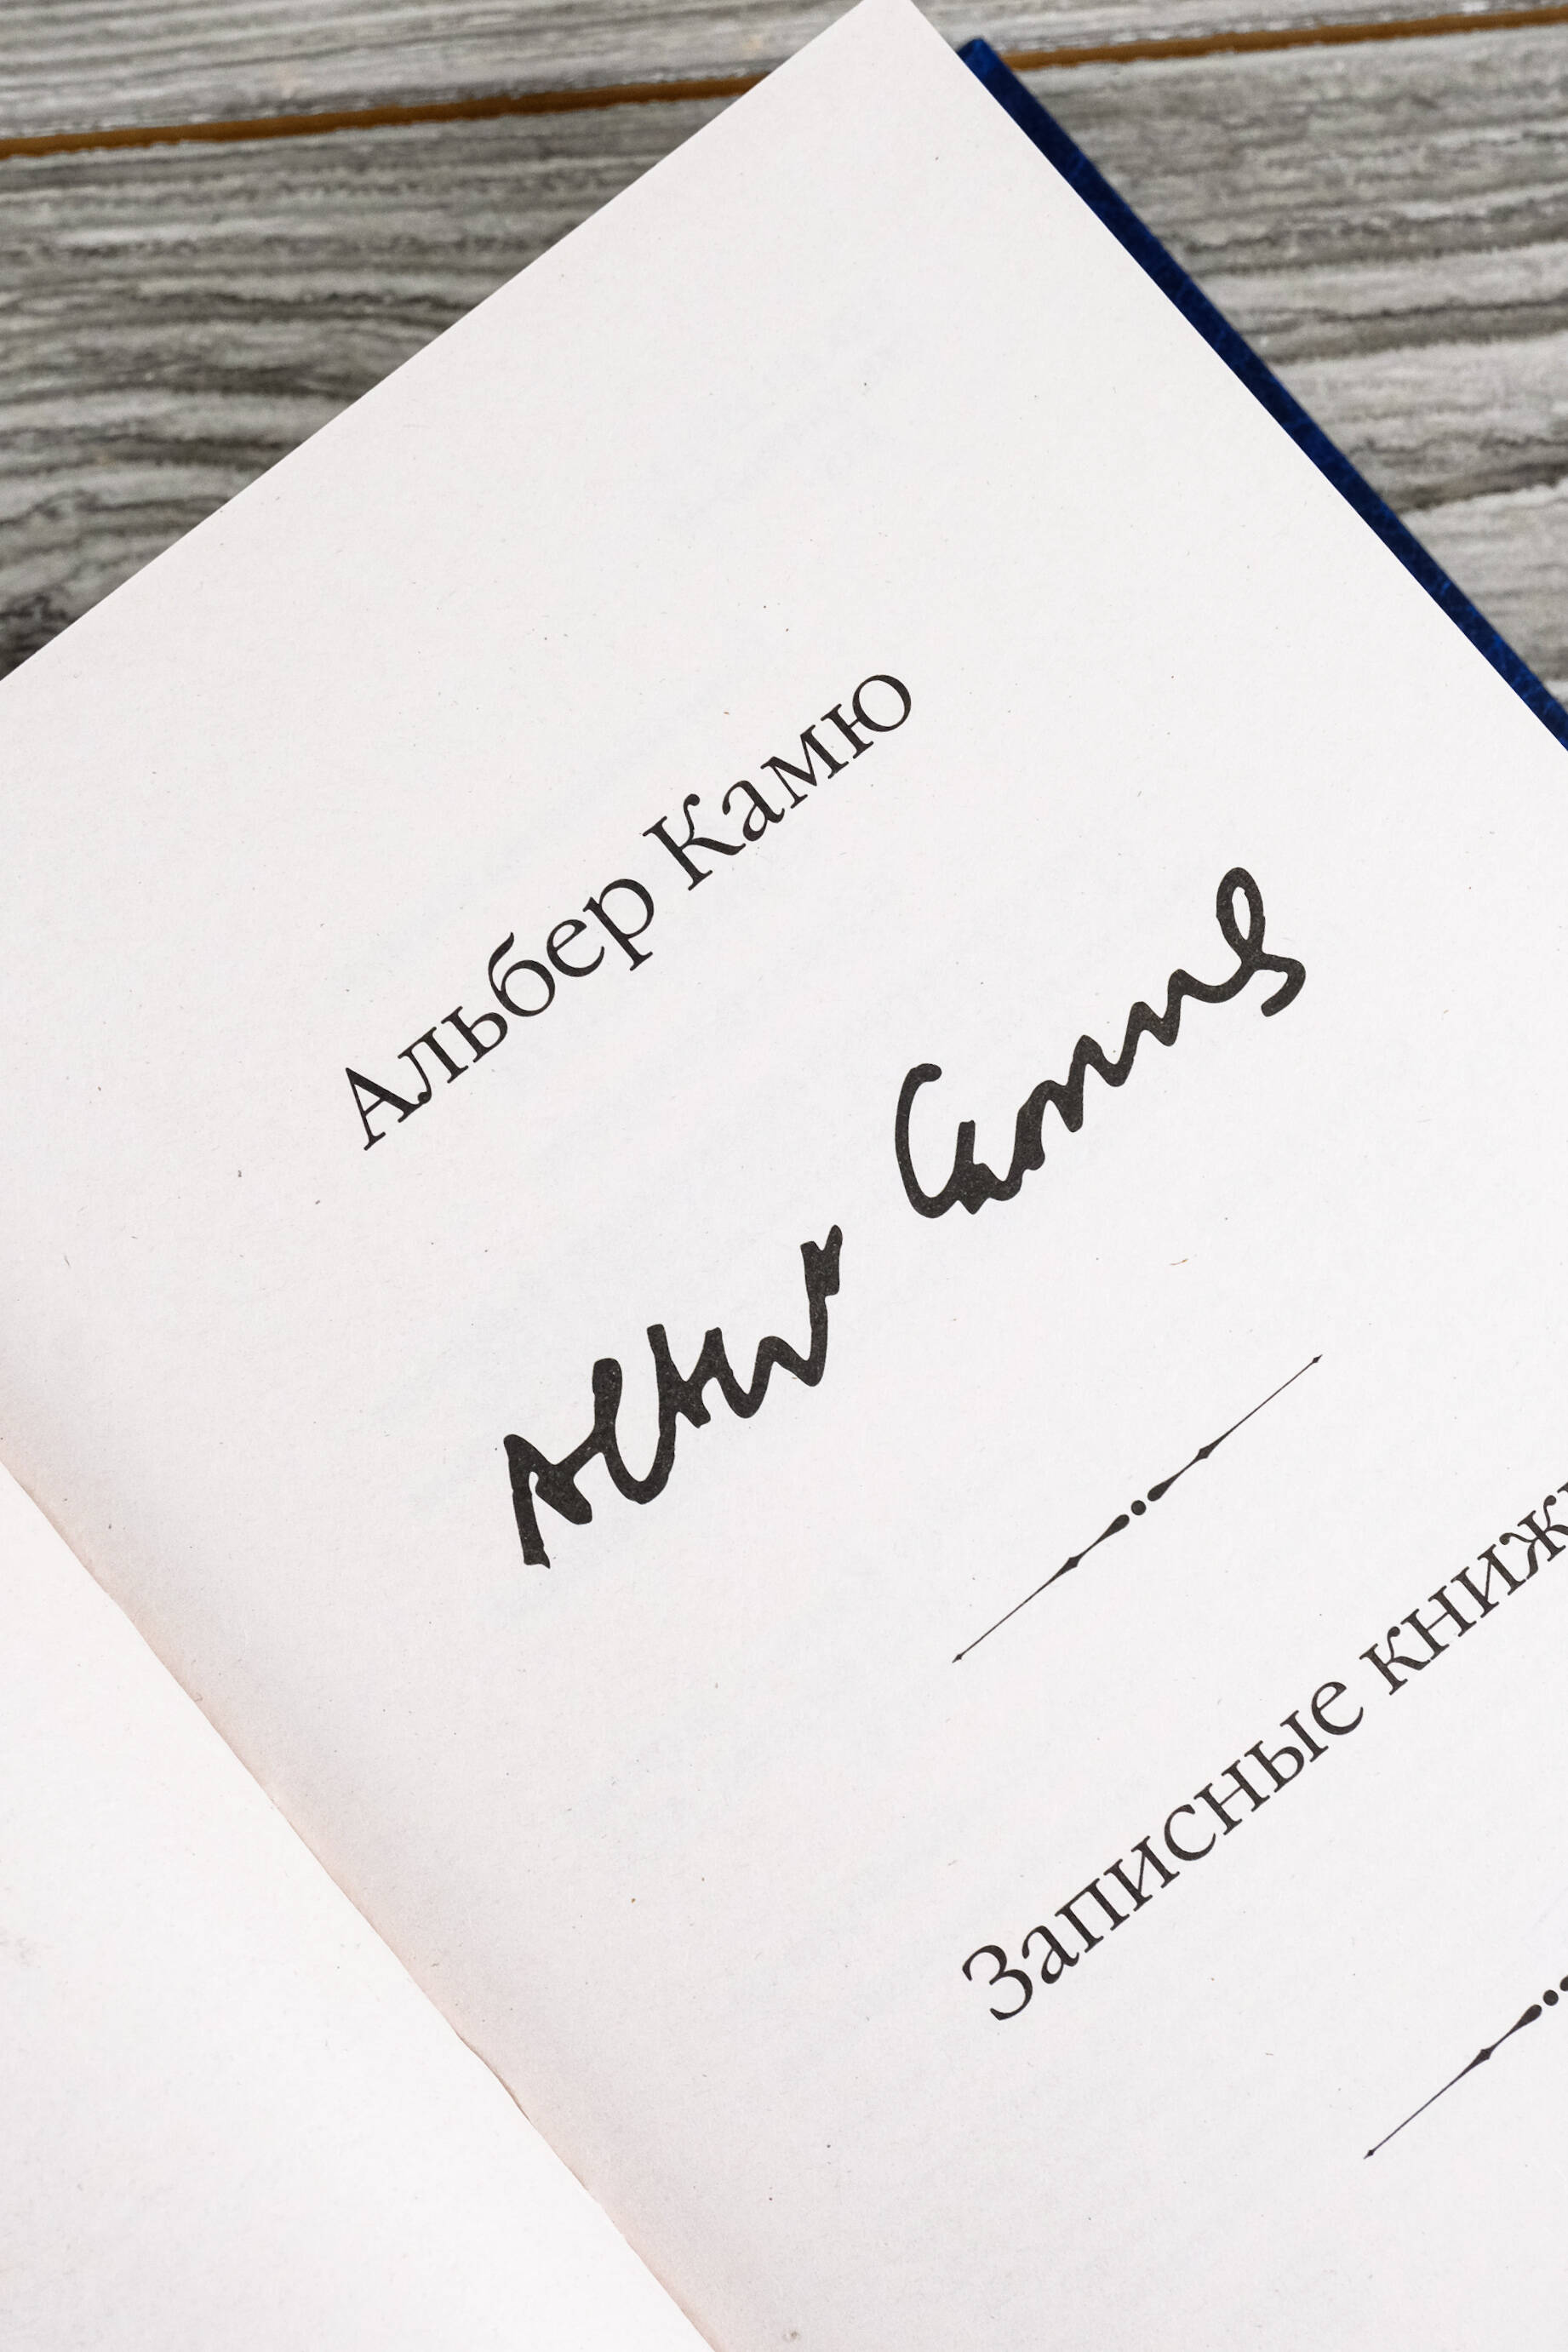 Альбер Камю
Albert Camus
Записные книжк